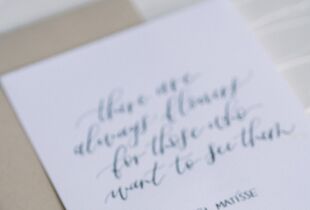 there are
always flowers
for those who
want to see them
MATISSE